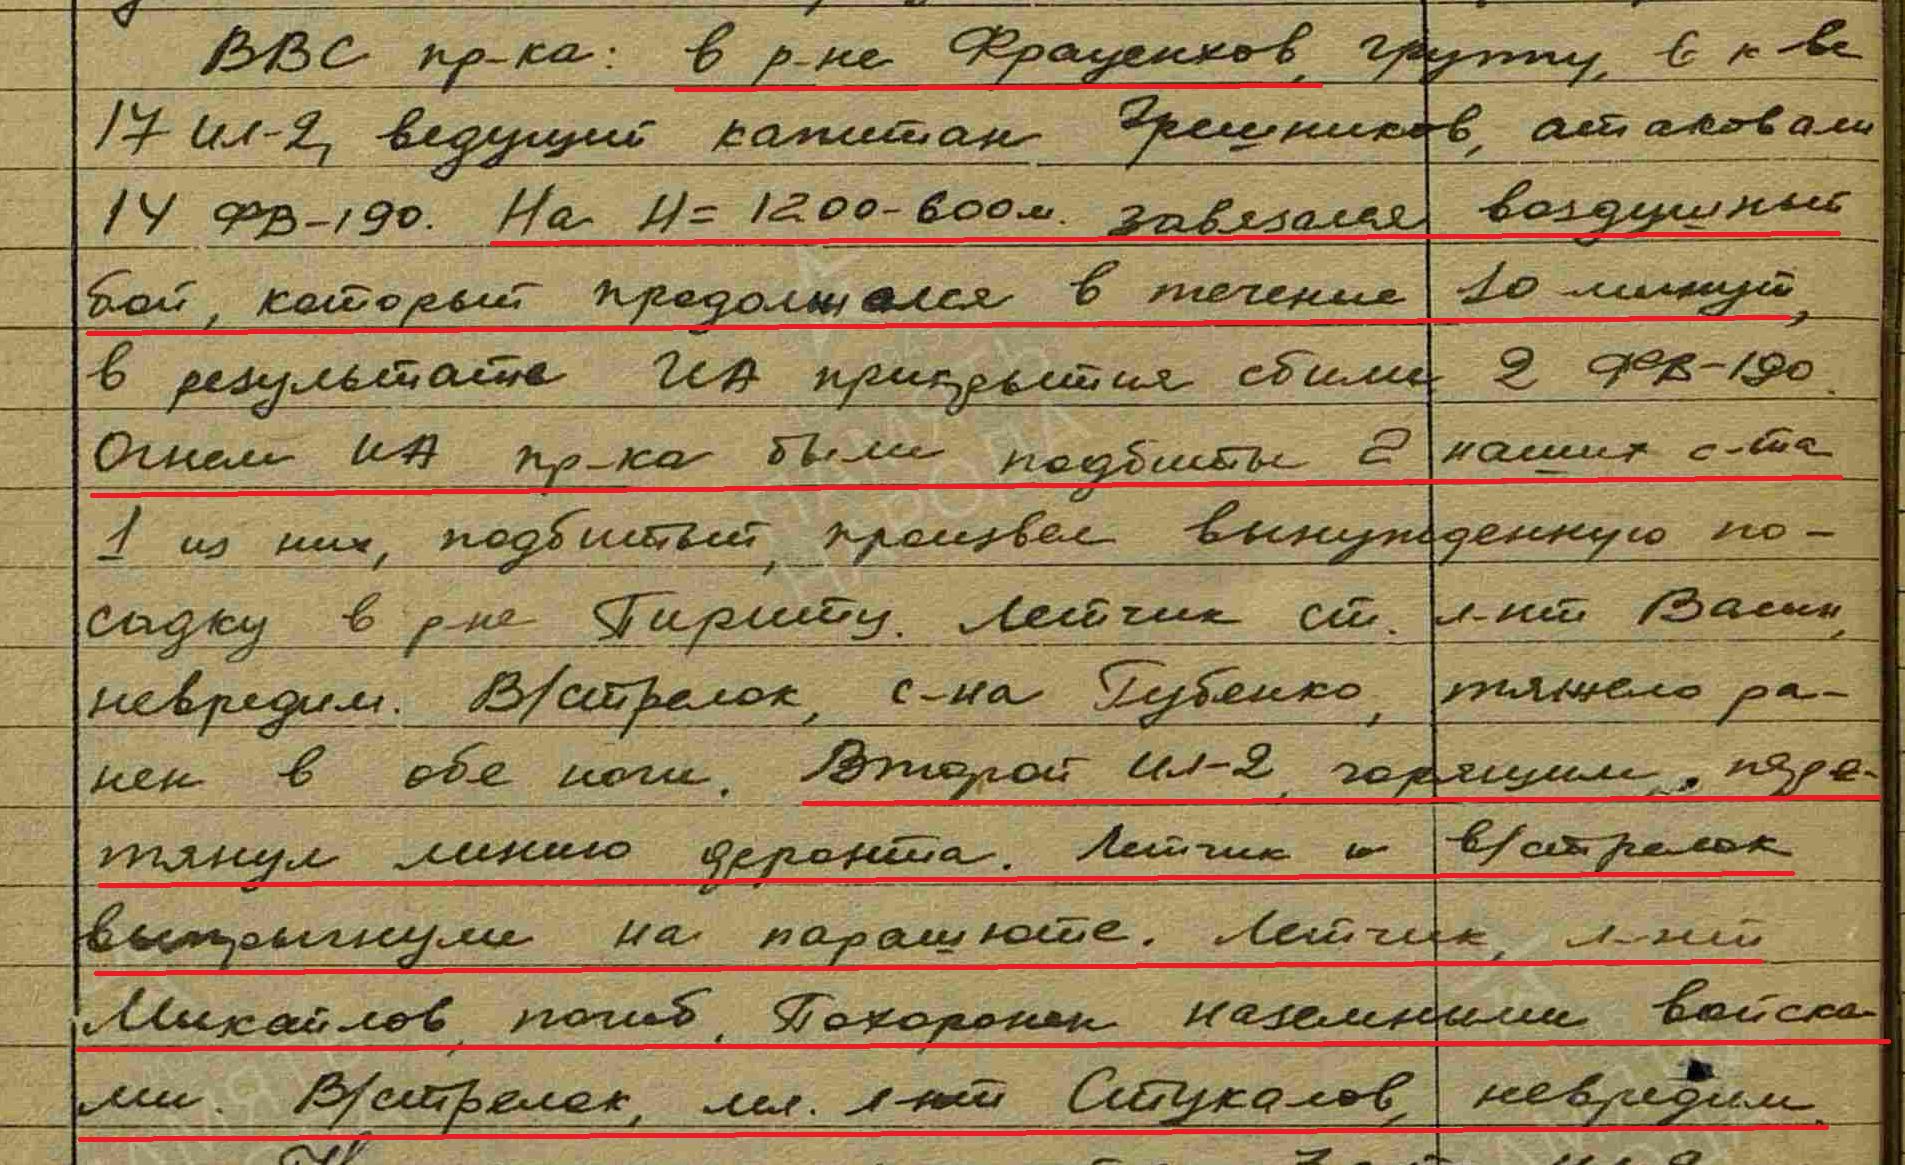 ВВС пр-ка: в р-не Фраценхов, группу, в к-ве
17 Ил-2, ведущий капитан Грешников, атаковали
14 ФВ-190. На Н= 1200-600м. завязался воздушный
бой, который продолжался в течение 10 минут,
в результате ИА прикрытия сбили 2 ФВ-190.
Огнем ИА пр-ка были подбиты 2 наших с-та
1 из них, подбитый, произвел вынужденную по-
садку в р-не Пириту. Летчик ст. л-нт Васин,
невредим. В/стрелок, с-на Губенко, тяжело ра-
нен в обе ноги. Второй Ил-2, горящим, пере-
тянул линию фронта. Летчик и в/стрелок
выпрыгнули на парашюте. Летчик, л-нт
Михайлов, погиб. Похоронен наземными войска-
ми. В/стрелок, мл. л-нт Стукалов, невредим.
ПАМЯТЬ
НАРОДА